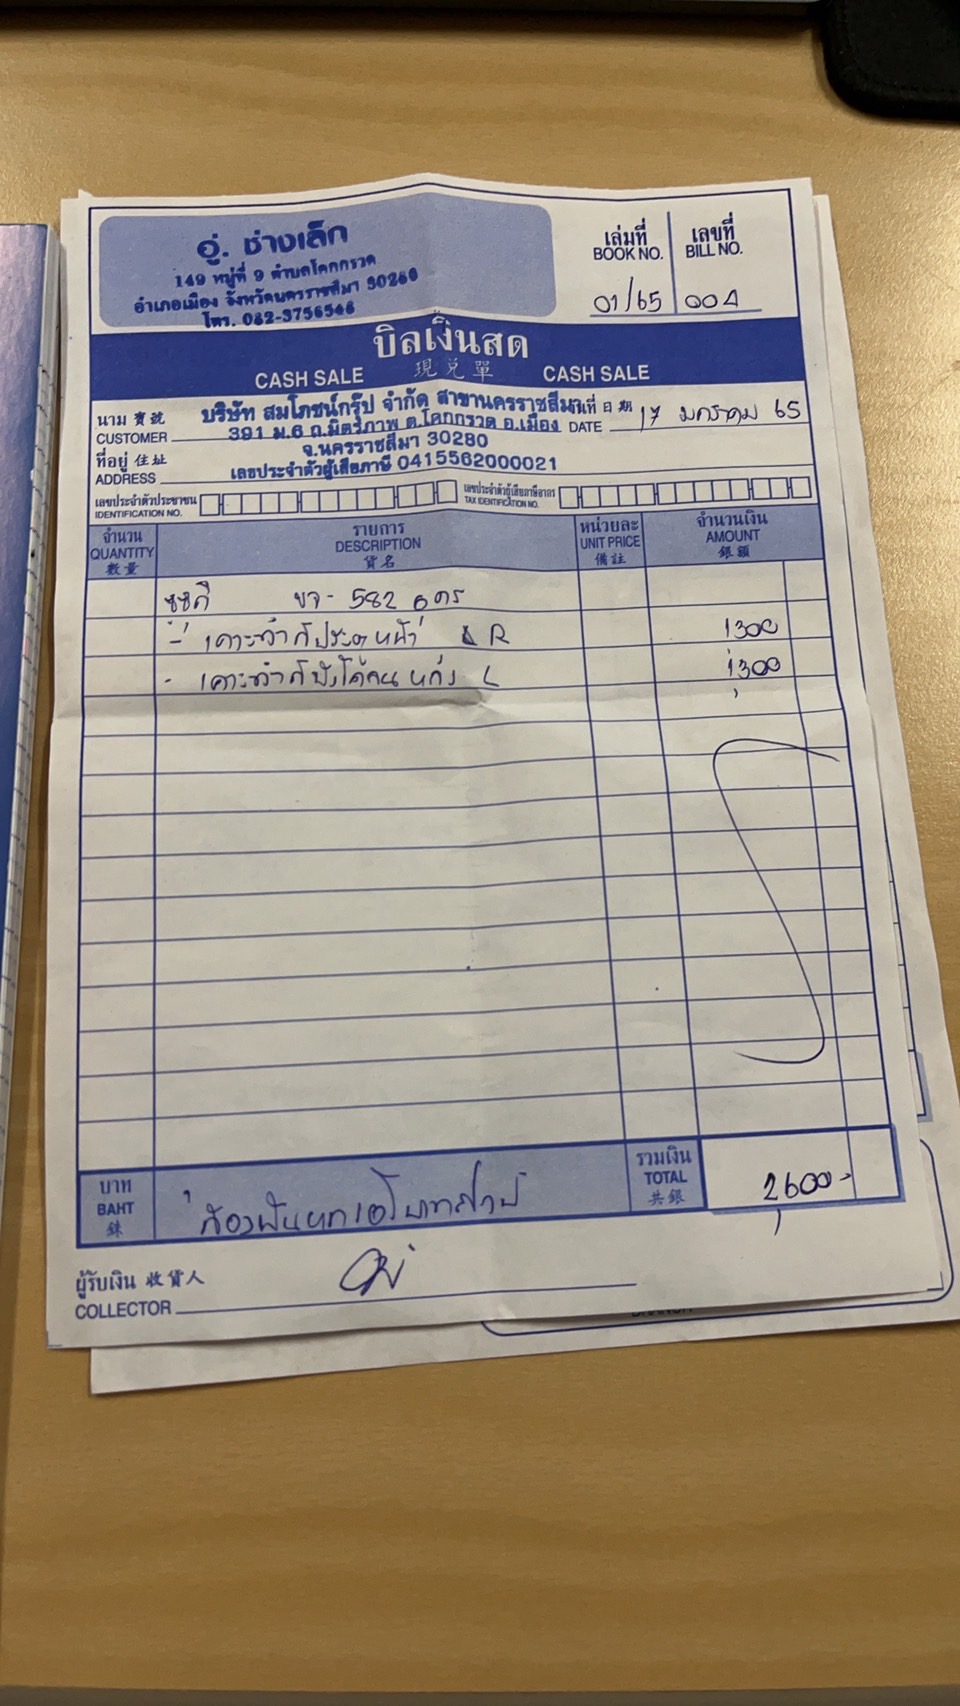 อู่. ช่างเล็ก
149 หมู่ที่ 9 ตำบลโคกกรวด
อำเภอเมือง จังหวัดนครราชสีมา 30280
โทร. 082-3756546
เล่มที่ เลขที่
BOOK NO. BILL NO.
01/65 004
บิลเงินสด
CASH SALE 現兑單 CASH SALE
นาม 寳號 บริษัท สมโภชน์กรุ๊ป จำกัด สาขานครราชสีมา วันที่ 日期
CUSTOMER 391 ม.6 ถ.มิตรภาพ ต.โคกกรวด อ.เมือง DATE 17 มกราคม 65
ที่อยู่ 住址 จ.นครราชสีมา 30280
ADDRESS เลขประจำตัวผู้เสียภาษี 0415562000021
เลขประจำตัวประชาชน เลขประจำตัวผู้เสียภาษีอากร
IDENTIFICATION NO. TAX IDENTIFICATION NO.
จำนวน รายการ หน่วยละ จำนวนเงิน
QUANTITY DESCRIPTION UNIT PRICE AMOUNT
數量 貨名 備註 銀額
ขจ - 582 อดร
- เคาะทำสีประตูหน้า R 1300
- เคาะทำสีบังโคลนหลัง L 1300
บาท รวมเงิน
BAHT สองพันหกร้อยบาทถ้วน TOTAL 2600-
銖 共銀
ผู้รับเงิน 收貨人
COLLECTOR